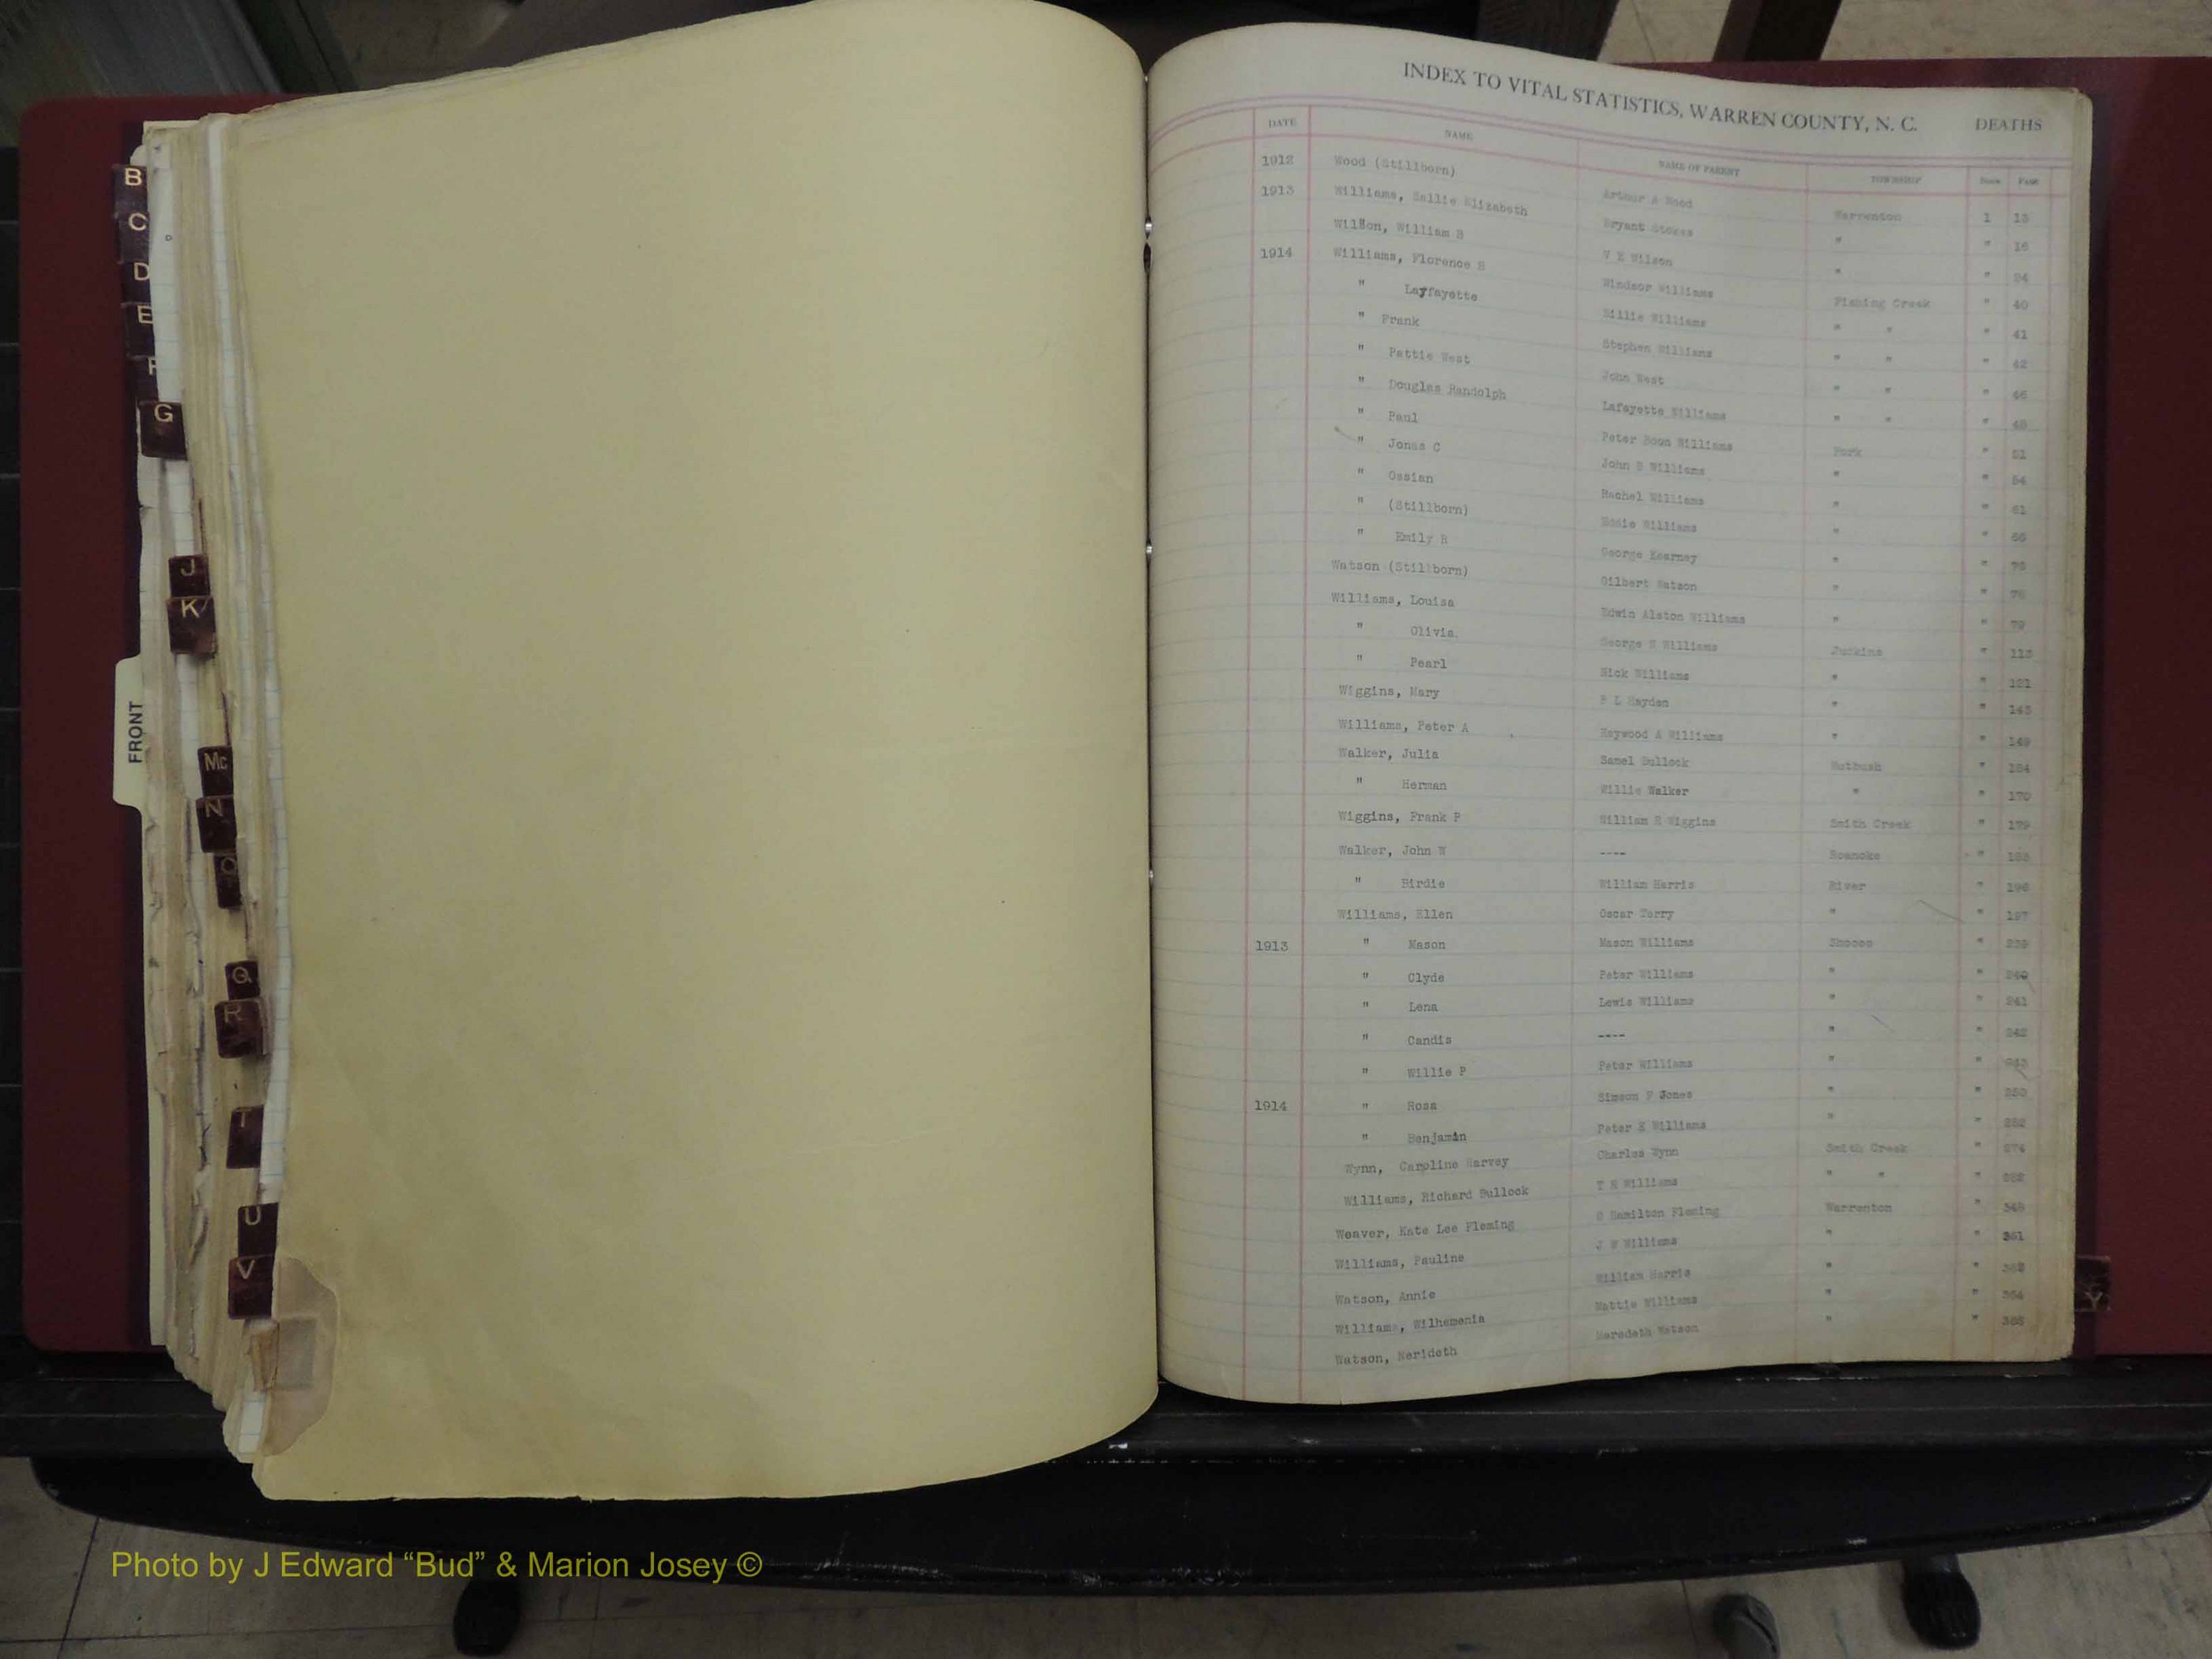 INDEX TO VITAL STATISTICS, WARREN COUNTY, N. C. DEATHS
DATE NAME NAME OF PARENT TOWNSHIP Book PAGE
1912 Wood (Stillborn) Arthur A Wood Warrenton 1 13
1913 Williams, Sallie Elizabeth Bryant Stokes " " 16
Wilson, William B V E Wilson " " 24
1914 Williams, Florence S Windsor Williams Fishing Creek " 40
" Laffayette Billie Williams " " " 41
" Frank Stephen Williams " " " 42
" Pattie West John West " " " 46
" Douglas Randolph Lafayette Williams " " " 48
" Paul Peter Boon Williams Fork " 51
" Jonas C John B Williams " " 54
" Ossian Rachel Williams " " 61
" (Stillborn) Eddie Williams " " 66
" Emily R George Kearney " " 75
Watson (Stillborn) Gilbert Watson " " 76
Williams, Louisa Edwin Alston Williams " " 79
" Olivia. George N Williams Judkins " 113
" Pearl Nick Williams " " 121
Wiggins, Mary P L Hayden " " 143
Williams, Peter A Haywood A Williams " " 149
Walker, Julia Samel Bullock Nutbush " 164
" Herman Willie Walker " " 170
Wiggins, Frank P William R Wiggins Smith Creek " 179
Walker, John W ---- Roanoke " 185
" Birdie William Harris River " 196
Williams, Ellen Oscar Terry " " 197
1913 " Mason Mason Williams Shocco " 239
" Clyde Peter Williams " " 240
" Lena Lewis Williams " " 241
" Candis ---- " " 242
" Willie P Peter Williams " " 243
1914 " Rosa Simson F Jones " " 250
" Benjamin Peter E Williams " " 252
Wynn, Caroline Harvey Charles Wynn Smith Creek " 274
Williams, Richard Bullock T R Williams " " " 282
Weaver, Kate Lee Fleming Hamilton Fleming Warrenton " 349
Williams, Pauline J W Williams " " 351
Watson, Annie William Harris " "
Williams, Wilhemenia Mattie Williams " " 364
Watson, Merideth Meredeth Watson " " 365
B
C
D
E
F
G
J
K
FRONT
Mc
N
O
Q
R
T
U
V
Y
Photo by J Edward “Bud” & Marion Josey ©